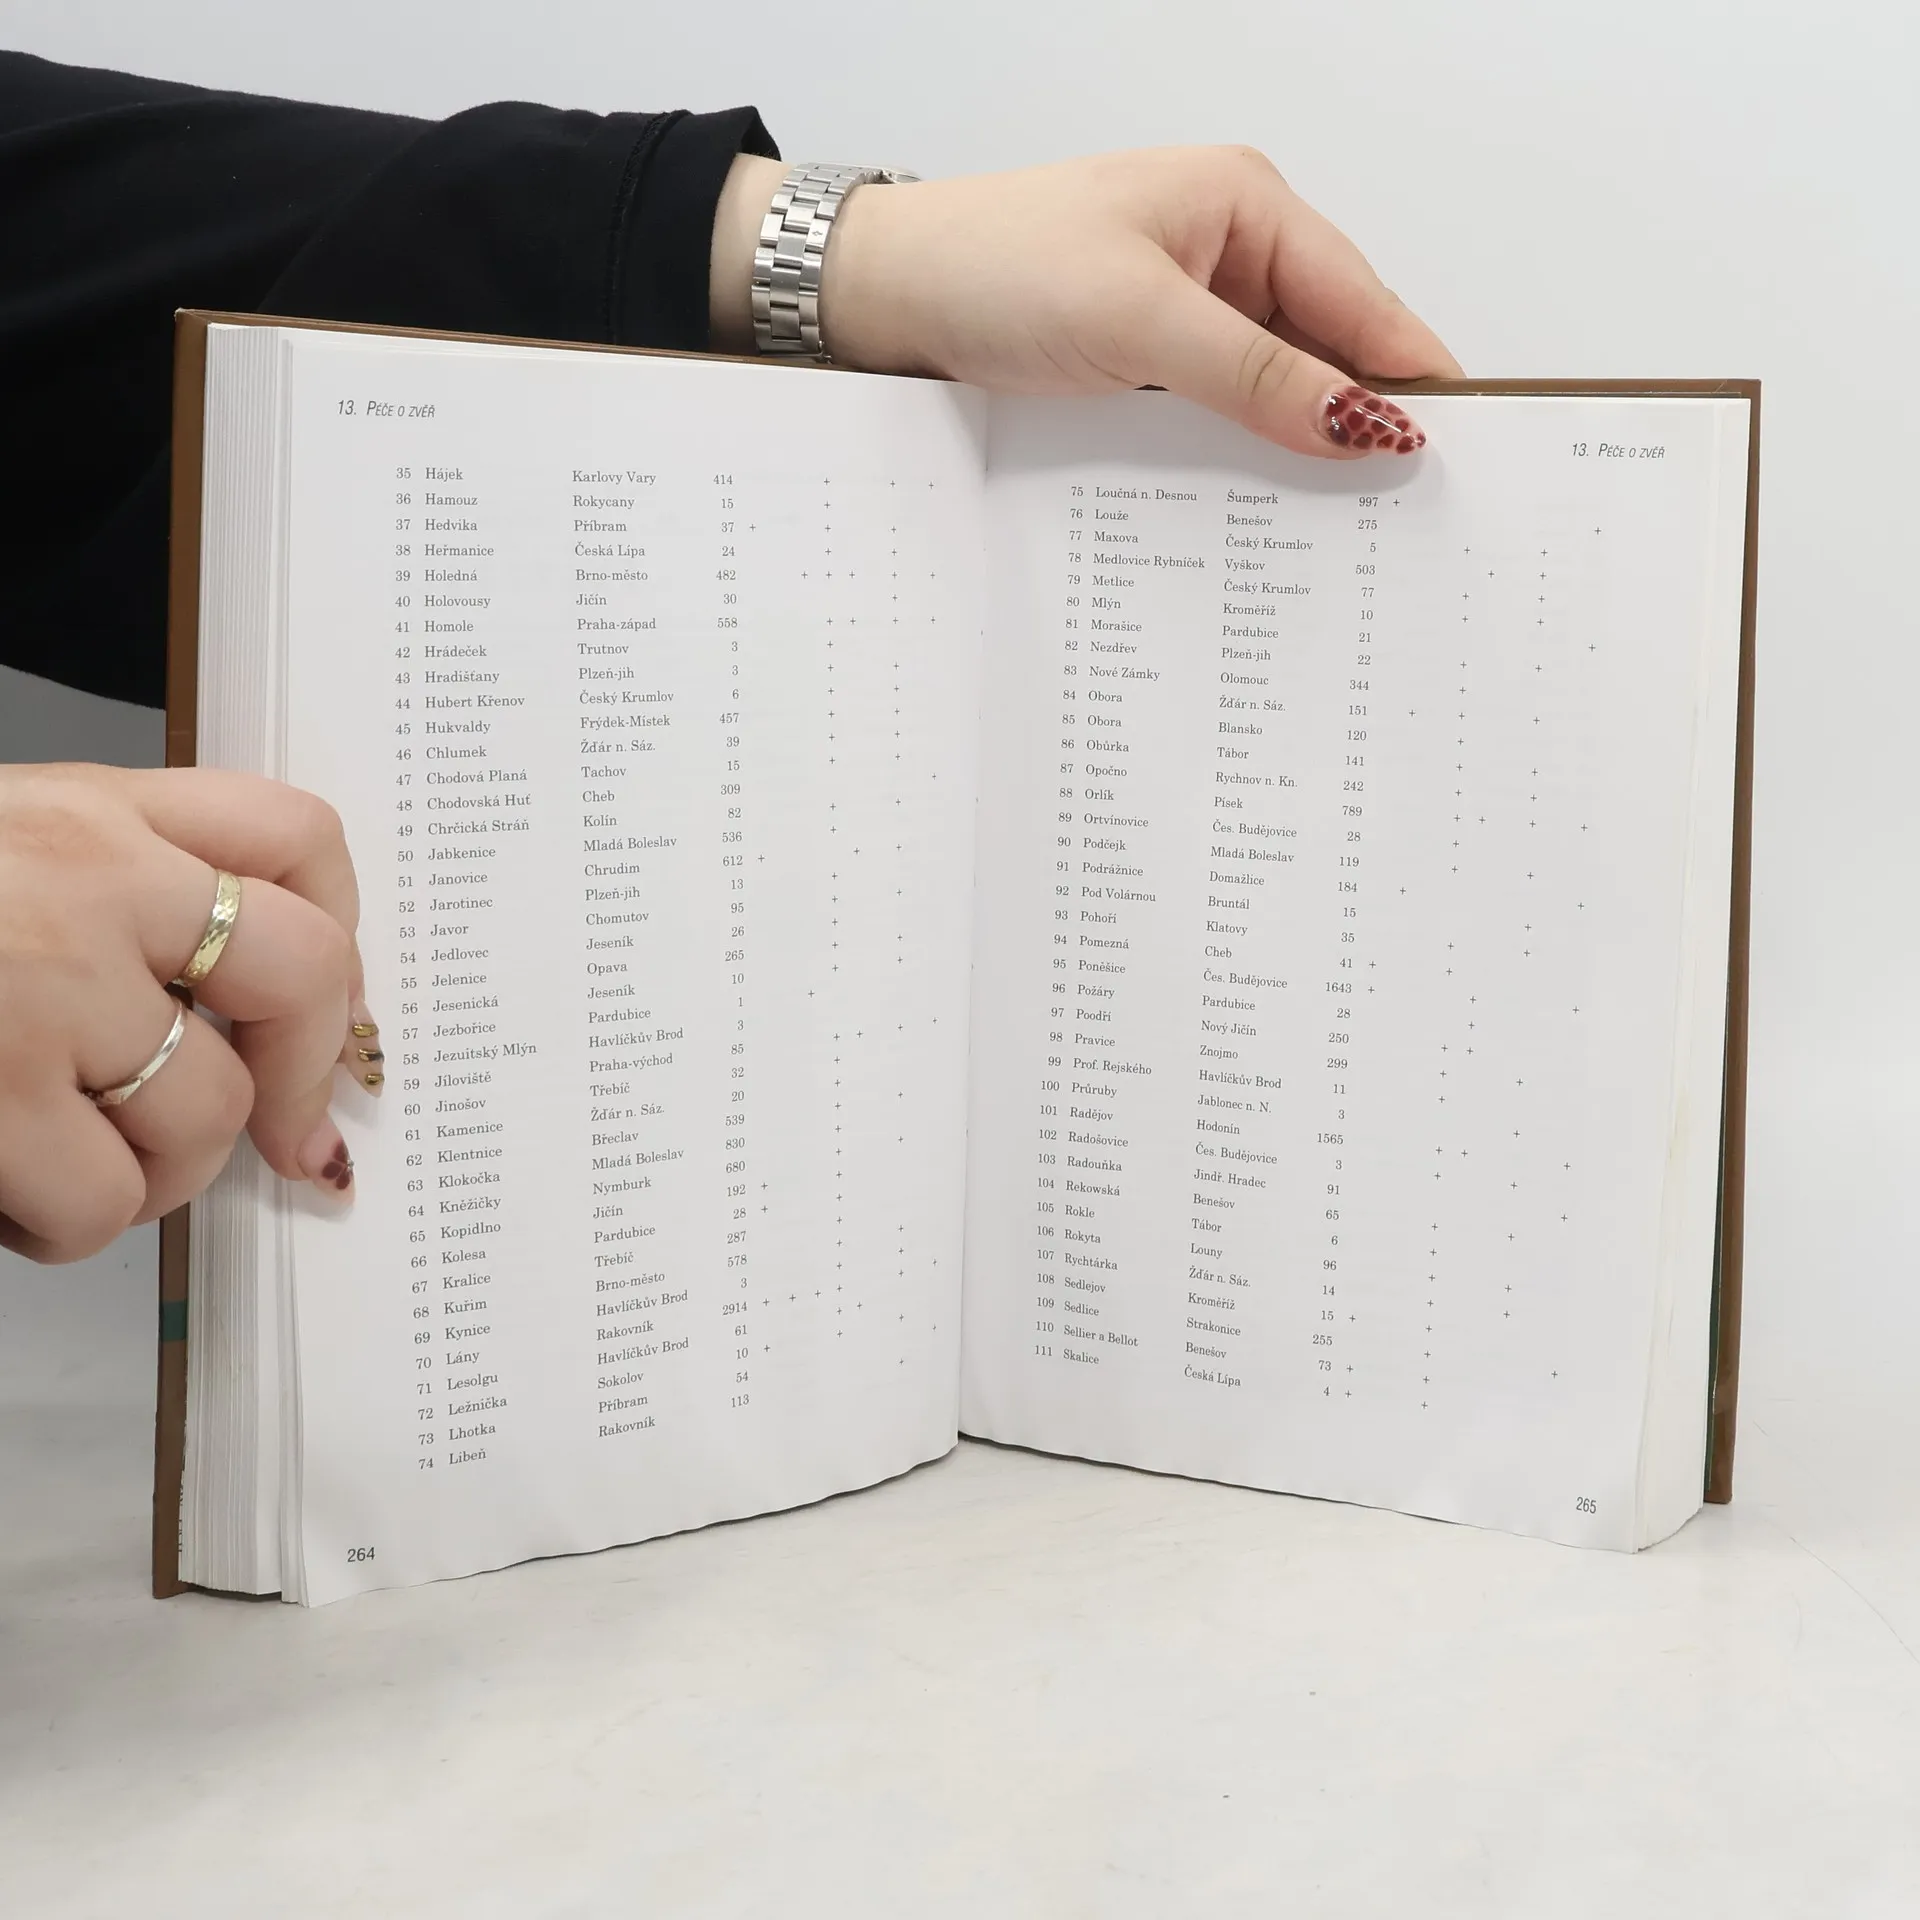 13. PÉČE O ZVĚŘ
35 Hájek Karlovy Vary 414 + + +
36 Hamouz Rokycany 15 +
37 Hedvika Příbram 37 + + +
38 Heřmanice Česká Lípa 24 + +
39 Holedná Brno-město 482 + + + + +
40 Holovousy Jičín 30 +
41 Homole Praha-západ 558 + + + +
42 Hrádeček Trutnov 3 +
43 Hradišťany Plzeň-jih 3 + +
44 Hubert Křenov Český Krumlov 6 + +
45 Hukvaldy Frýdek-Místek 457 + +
46 Chlumek Žďár n. Sáz. 39 + +
47 Chodová Planá Tachov 15 + +
48 Chodovská Huť Cheb 309 +
49 Chrčická Stráň Kolín 82 + +
50 Jabkenice Mladá Boleslav 536 +
51 Janovice Chrudim 612 + + +
52 Jarotinec Plzeň-jih 13 +
53 Javor Chomutov 95 + +
54 Jedlovec Jeseník 26 +
55 Jelenice Opava 265 + +
56 Jesenická Jeseník 10 + +
57 Jezbořice Pardubice 1 +
58 Jezuitský Mlýn Havlíčkův Brod 3
59 Jíloviště Praha-východ 85 + + + +
60 Jinošov Třebíč 32 +
61 Kamenice Žďár n. Sáz. 20 +
62 Klentnice Břeclav 539 + +
63 Klokočka Mladá Boleslav 830 +
64 Kněžičky Nymburk 680 + +
65 Kopidlno Jičín 192 + +
66 Kolesa Pardubice 28 + +
67 Kralice Třebíč 287 +
68 Kuřim Brno-město 578 + +
69 Kynice Havlíčkův Brod 3 + +
70 Lány Rakovník 2914 + + + + + +
71 Lesolgu Havlíčkův Brod 61 + +
72 Ležnička Sokolov 10 + + +
73 Lhotka Příbram 54 +
74 Libeň Rakovník 113 +
264
13. PÉČE O ZVĚŘ
75 Loučná n. Desnou Šumperk 997 +
76 Louže Benešov 275 +
77 Maxova Český Krumlov 5 + +
78 Medlovice Rybníček Vyškov 503 + +
79 Metlice Český Krumlov 77 + +
80 Mlýn Kroměříž 10 + +
81 Morašice Pardubice 21 +
82 Nezdřev Plzeň-jih 22 + +
83 Nové Zámky Olomouc 344 +
84 Obora Žďár n. Sáz. 151 + + +
85 Obora Blansko 120 +
86 Obůrka Tábor 141 + +
87 Opočno Rychnov n. Kn. 242 + +
88 Orlík Písek 789 + + + +
89 Ortvínovice Čes. Budějovice 28 +
90 Podčejk Mladá Boleslav 119 + +
91 Podrážnice Domažlice 184 + +
92 Pod Volárnou Bruntál 15 +
93 Pohoří Klatovy 35 + +
94 Pomezná Cheb 41 + +
95 Poněšice Čes. Budějovice 1643 + + +
96 Požáry Pardubice 28 +
97 Poodří Nový Jičín 250 + +
98 Pravice Znojmo 299 + +
99 Prof. Rejského Havlíčkův Brod 11 +
100 Průruby Jablonec n. N. 3 +
101 Radějov Hodonín 1565 + + +
102 Radošovice Čes. Budějovice 3 + +
103 Radouňka Jindř. Hradec 91 +
104 Rekowská Benešov 65 + +
105 Rokle Tábor 6 +
106 Rokyta Louny 96 + +
107 Rychtárka Žďár n. Sáz. 14 + +
108 Sedlejov Kroměříž 15 + +
109 Sedlice Strakonice 255 + +
110 Sellier a Bellot Benešov 73 + +
111 Skalice Česká Lípa 4 + +
265